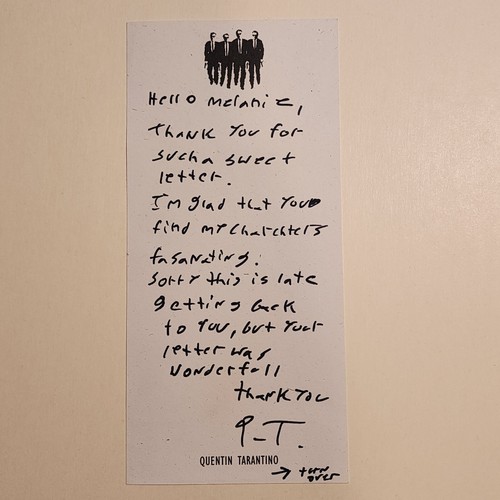 Hello Melanie,
Thank you for
such a sweet
letter.
I'm glad that you
find my charchters
fasanating.
Sorry this is late
getting back
to you, but your
letter was
wonderfull
thank you
Q-T.
QUENTIN TARANTINO
→ turn
over